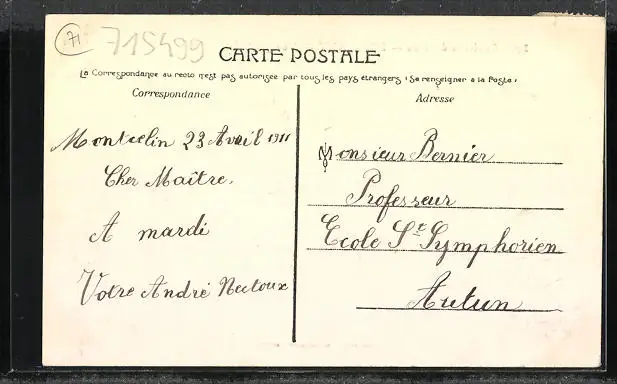 71
715499
CARTE POSTALE
La Correspondance au recto n'est pas autorisée par tous les pays étrangers (Se renseigner à la Poste)
Correspondance
Montcelin 23 Avril 1911
Cher Maître.
A mardi
Votre André Nectoux
Adresse
Monsieur Bernier
Professeur
Ecole St Symphorien
Autun